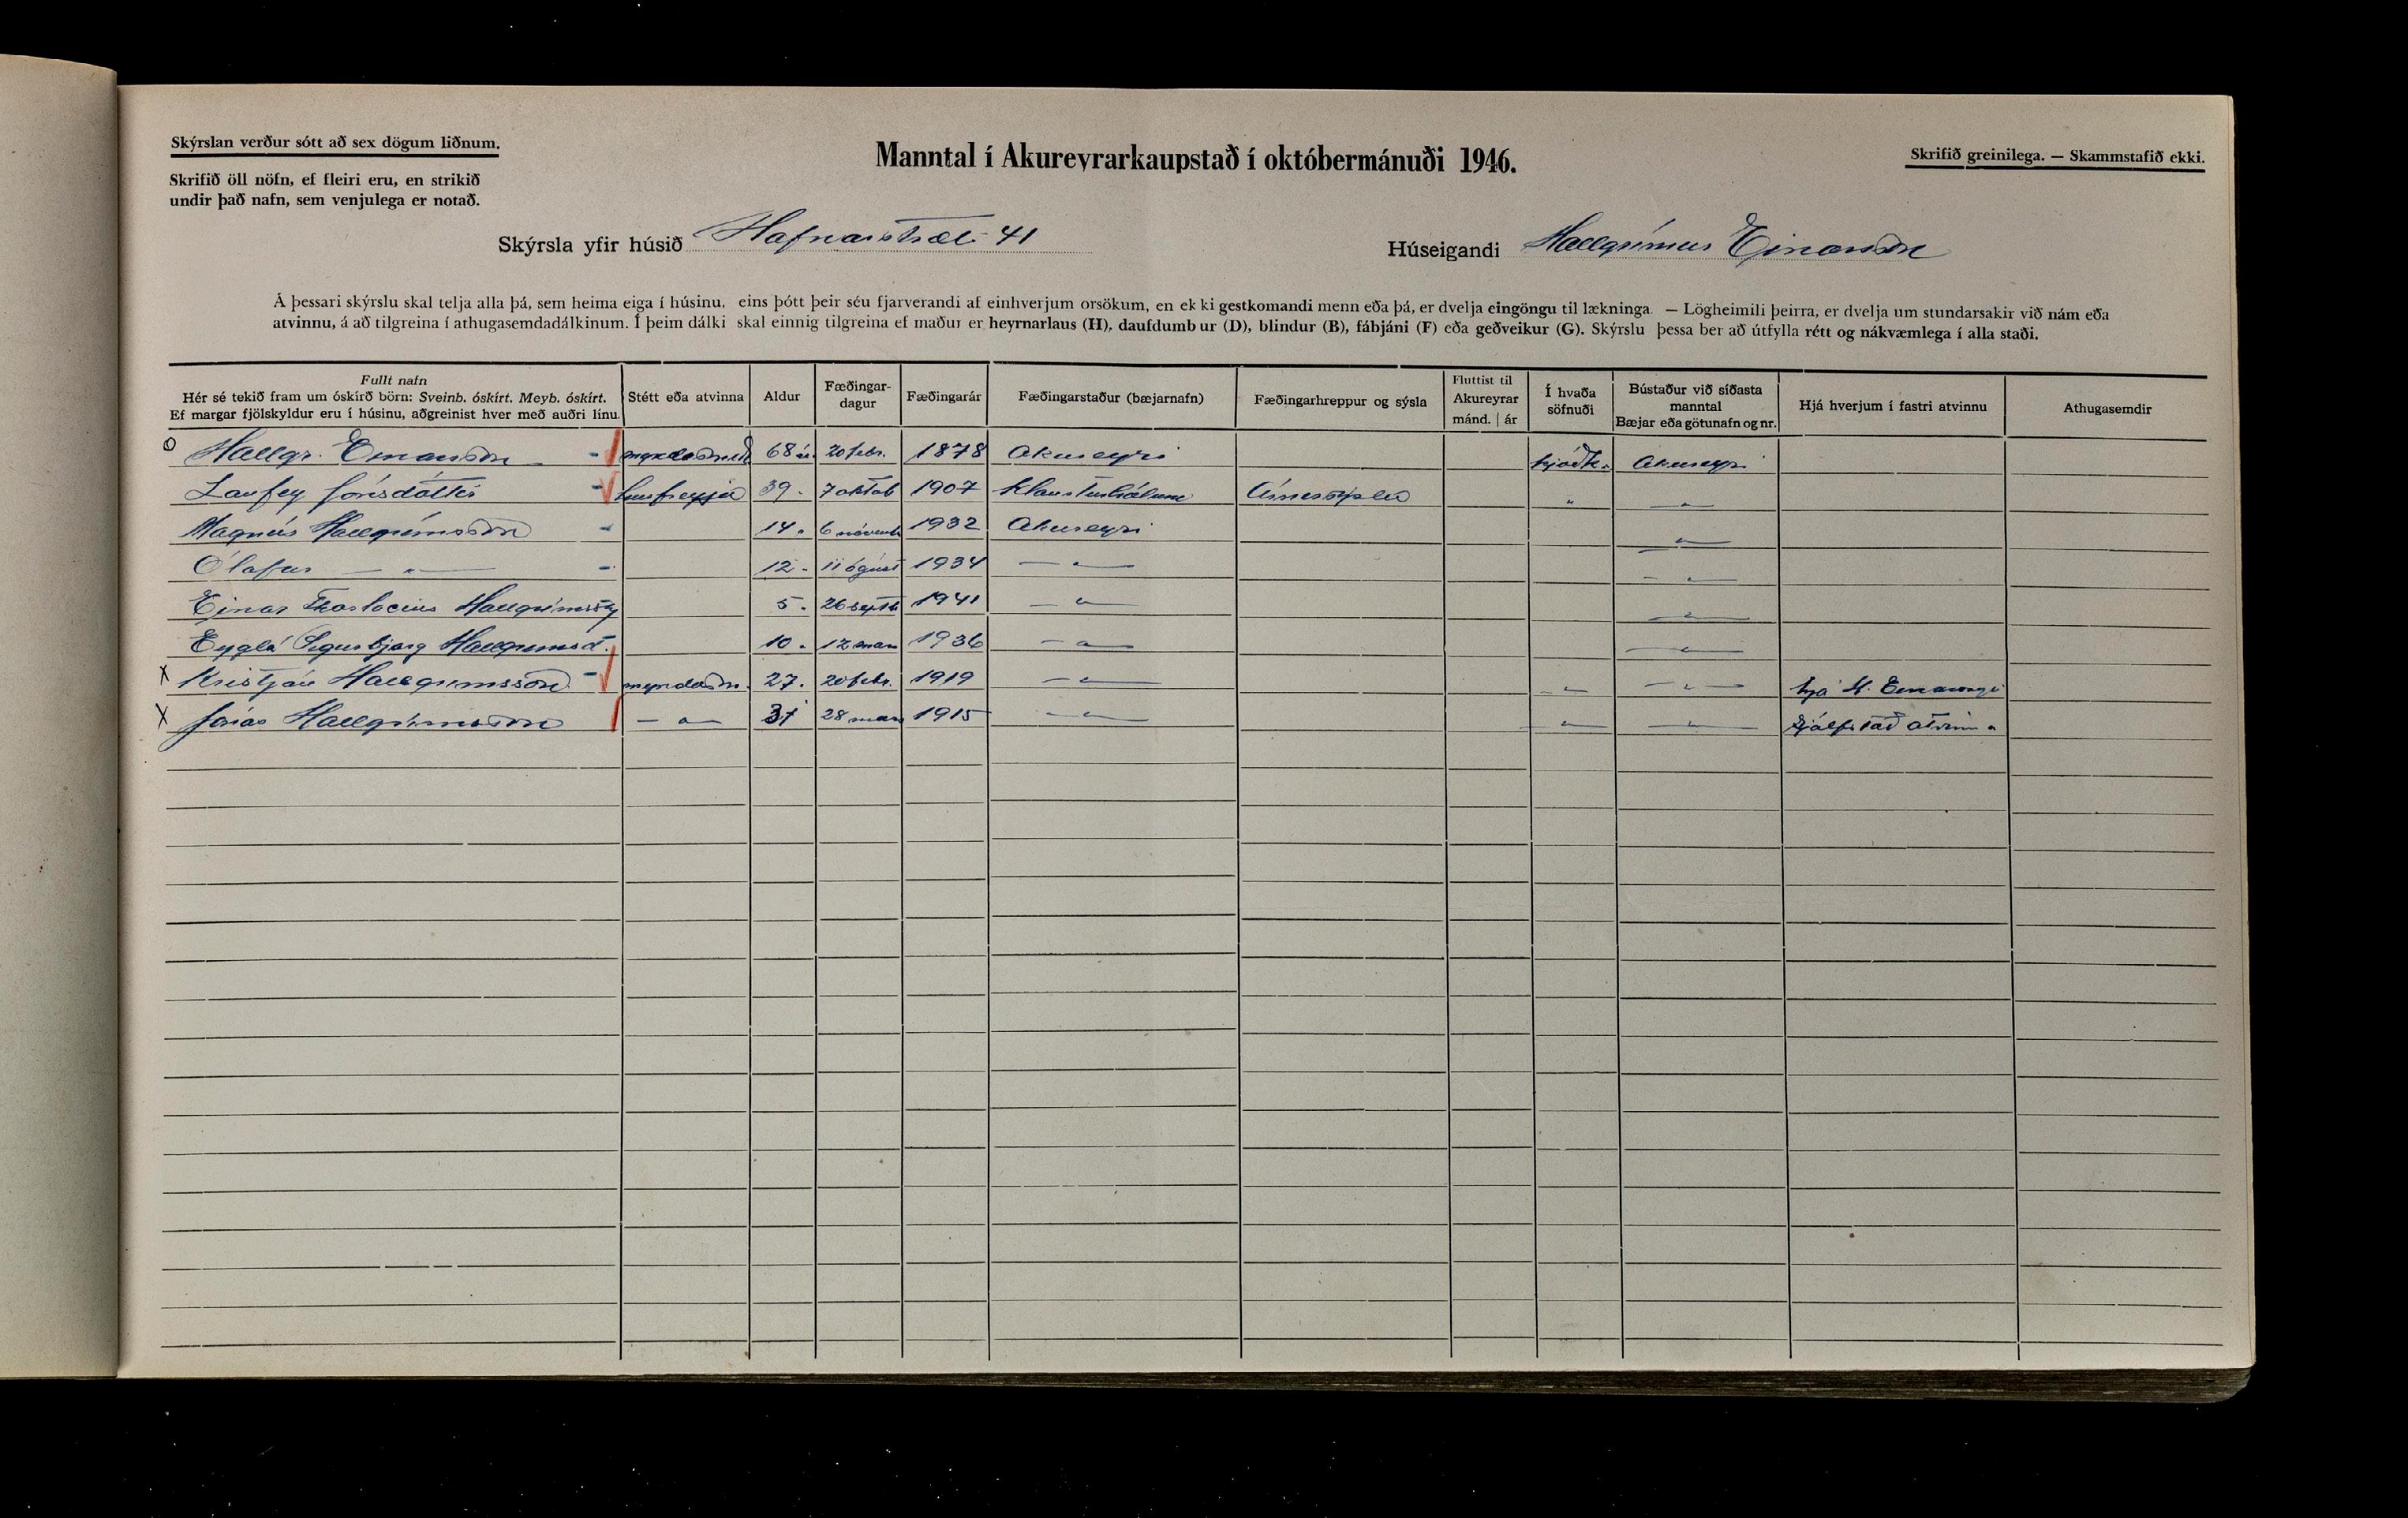 Skýrslan verður sótt að sex dögum liðnum.
Skrifið öll nöfn, ef fleiri eru, en strikið
undir það nafn, sem venjulega er notað.
Manntal í Akureyrarkaupstað í októbermánuði 1946.
Skrifið greinilega. — Skammstafið ekki.
Skýrsla yfir húsið Hafnarstræti 41
Húseigandi Hallgrímur Einarsson
Á þessari skýrslu skal telja alla þá, sem heima eiga í húsinu, eins þótt þeir séu fjarverandi af einhverjum orsökum, en ekki gestkomandi menn eða þá, er dvelja eingöngu til lækninga. — Lögheimili þeirra, er dvelja um stundarsakir við nám eða
atvinnu, á að tilgreina í athugasemdadálkinum. Í þeim dálki skal einnig tilgreina ef maður er heyrnarlaus (H), daufdumbur (D), blindur (B), fábjáni (F) eða geðveikur (G). Skýrslu þessa ber að útfylla rétt og nákvæmlega í alla staði.
Fullt nafn
Hér sé tekið fram um óskírð börn: Sveinb. óskírt. Meyb. óskírt.
Ef margar fjölskyldur eru í húsinu, aðgreinist hver með auðri línu.
Stétt eða atvinna
Aldur
Fæðingar-
dagur
Fæðingarár
Fæðingarstaður (bæjarnafn)
Fæðingarhreppur og sýsla
Fluttist til
Akureyrar
mánd. | ár
Í hvaða
söfnuði
Bústaður við síðasta
manntal
Bæjar eða götunafn og nr.
Hjá hverjum í fastri atvinnu
Athugasemdir
Hallgr. Einarsson 68 ár 20 febr. 1878 Akureyri þjóðk. Akureyri
Laufey Jónsdóttir húsfreyja 39. 7 oktob 1907 Klausturhólum Árnessýslu " — " —
Magnús Hallgrímsson 14. 6 novemb 1932 Akureyri — " —
Ólafur — " — 12. 11 ágúst 1934 — " — — " —
Einar Thorlacius Hallgrímss 5. 26 septb 1941 — " — — " —
Eygló Sigurbjörg Hallgrímsd. 10. 12 mars 1936 — " — — " —
X Kristján Hallgrímsson myndasm. 27. 20 febr. 1919 — " — — " — — " — hjá H. Einarssyni
X Jónas Hallgrímsson — " — 31 28 mars 1915 — " — — " — — " — Sjálfstæð atvinna